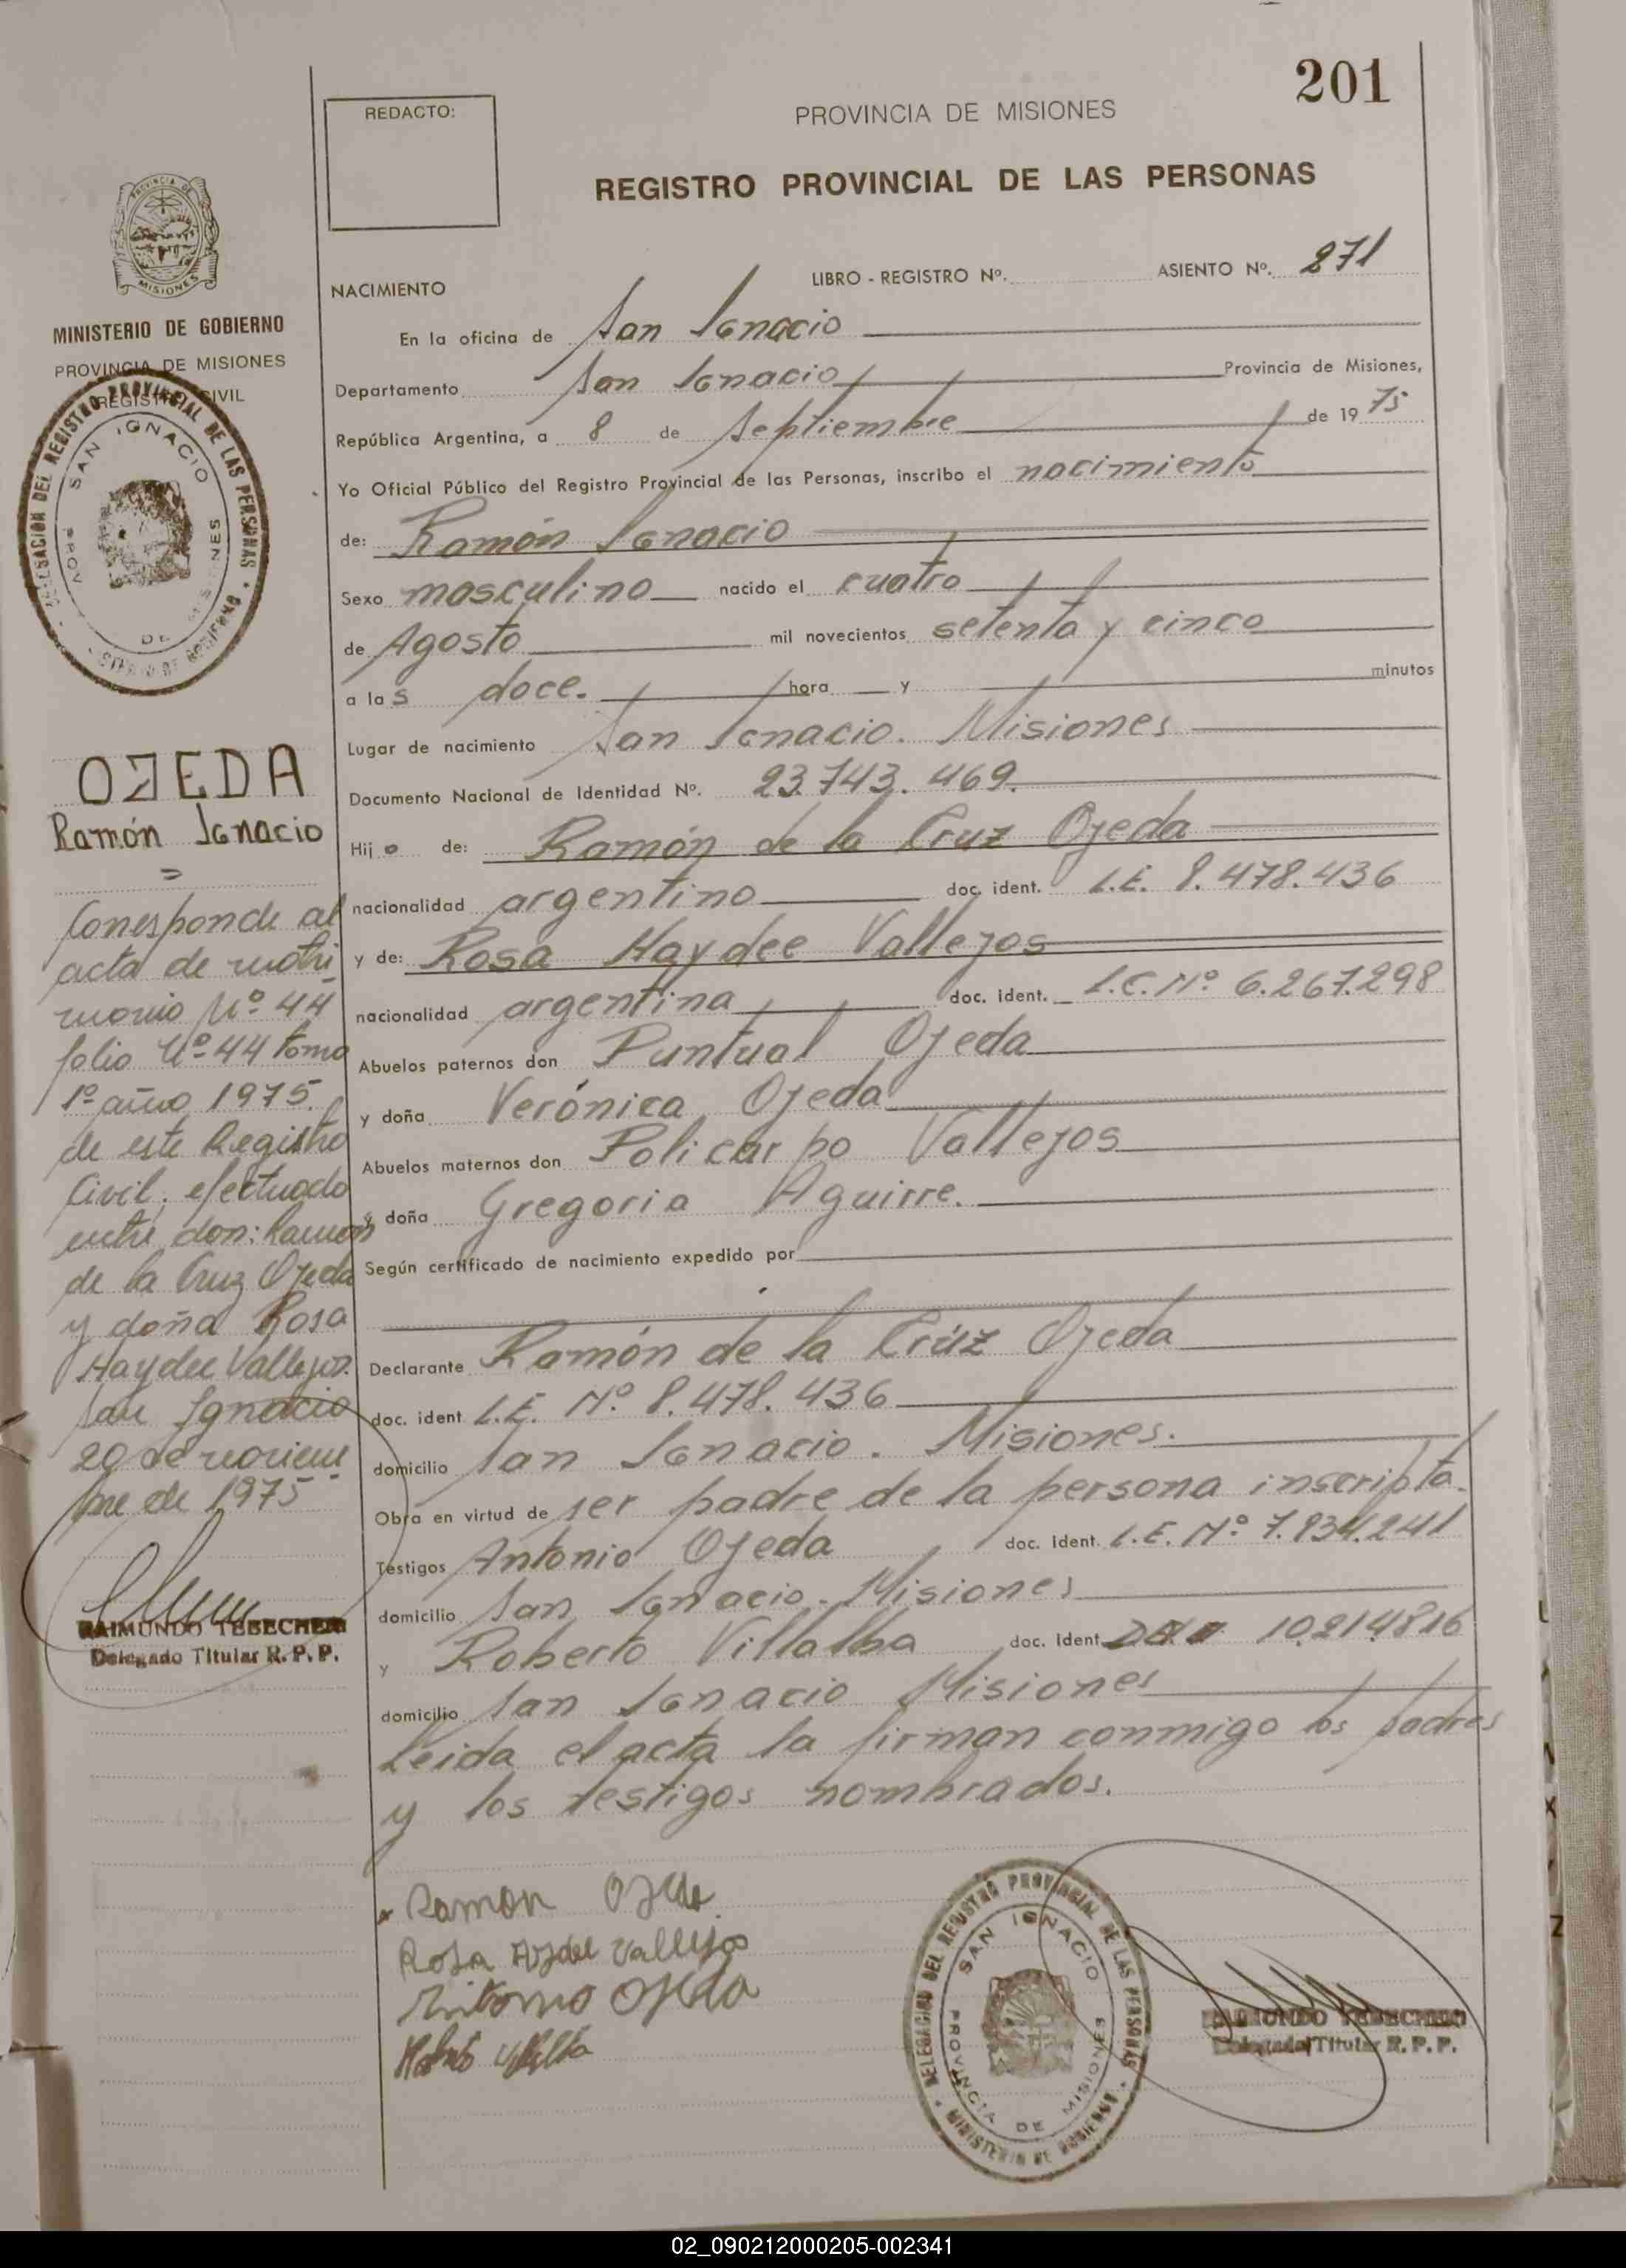 201
REDACTO:
PROVINCIA DE MISIONES
REGISTRO PROVINCIAL DE LAS PERSONAS
PROVINCIA DE
MISIONES
MINISTERIO DE GOBIERNO
PROVINCIA DE MISIONES
REGISTRO CIVIL
DELEGACION DEL REGISTRO PROVINCIAL DE LAS PERSONAS
SAN IGNACIO
NACIMIENTO LIBRO - REGISTRO Nº. ASIENTO Nº. 271
En la oficina de San Ignacio
Departamento San Ignacio Provincia de Misiones,
República Argentina, a 8 de Septiembre de 1975
Yo Oficial Público del Registro Provincial de las Personas, inscribo el nacimiento
de: Ramón Ignacio
Sexo masculino nacido el cuatro
de Agosto mil novecientos setenta y cinco
a las doce. hora y minutos
Lugar de nacimiento San Ignacio. Misiones
Documento Nacional de Identidad Nº. 23.743.469.
Hijo de: Ramón de la Cruz Ojeda
nacionalidad argentino doc. ident. L.E. 8.478.436
y de: Rosa Haydee Vallejos
nacionalidad argentina doc. ident. L.C. Nº 6.267.298
Abuelos paternos don Puntual Ojeda
y doña Verónica Ojeda
Abuelos maternos don Policarpo Vallejos
y doña Gregoria Aguirre.
Según certificado de nacimiento expedido por
Declarante Ramón de la Crúz Ojeda
doc. ident. L.E. Nº 8.478.436
domicilio San Ignacio. Misiones.
Obra en virtud de ser padre de la persona inscripta.
Testigos Antonio Ojeda doc. ident. L.E. Nº 7.834.241
domicilio San Ignacio. Misiones
y Roberto Villalba doc. ident. 10.214.816
domicilio San Ignacio Misiones
Leida el acta la firman conmigo los padres
y los testigos nombrados.
OJEDA
Ramón Ignacio
=
Corresponde al
acta de matri
monio Nº 44
folio Nº 44 tomo
1º año 1975.
de este Registro
Civil; efectuado
entre don: Ramon
de la Cruz Ojeda
y doña Rosa
Haydee Vallejos.
San Ignacio
20 de noviem
bre de 1975
RAIMUNDO TEBECHERI
Delegado Titular R. P. P.
Ramon Ojeda
Rosa Aydel Vallejos
Antonio Ojeda
DELEGACION DEL REGISTRO PROVINCIAL DE LAS PERSONAS
MINISTERIO DE GOBIERNO
SAN IGNACIO
PROVINCIA DE MISIONES
RAIMUNDO TEBECHERI
Delegado Titular R. P. P.
02_090212000205-002341